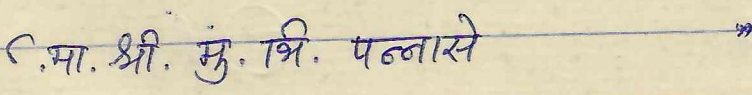 मा. श्री. मुं. भि. पन्नासे "